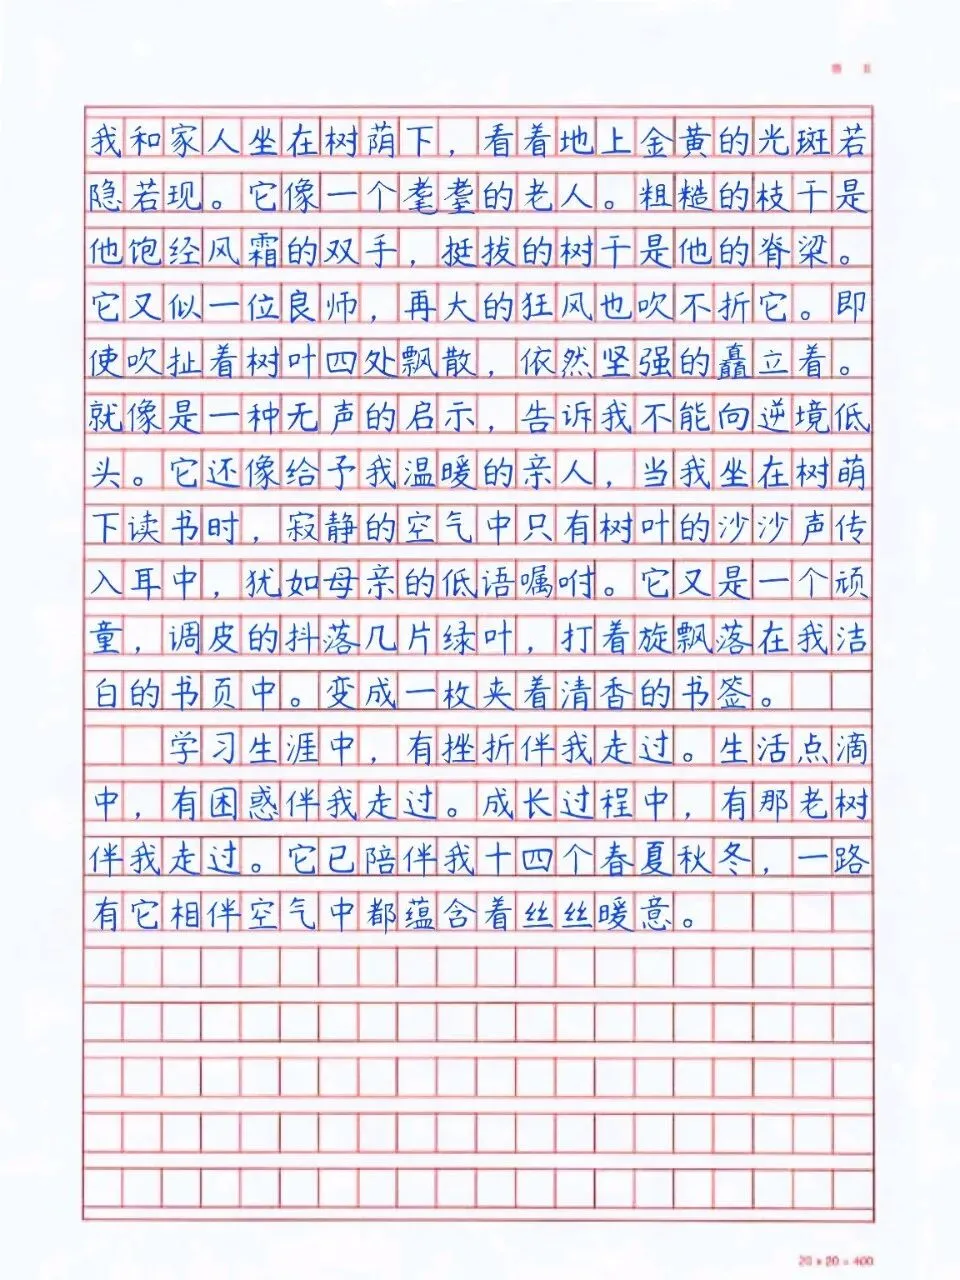 我和家人坐在树荫下，看着地上金黄的光斑若
隐若现。它像一个耄耋的老人。粗糙的枝干是
他饱经风霜的双手，挺拔的树干是他的脊梁。
它又似一位良师，再大的狂风也吹不折它。即
使吹扯着树叶四处飘散，依然坚强的矗立着。
就像是一种无声的启示，告诉我不能向逆境低
头。它还像给予我温暖的亲人，当我坐在树萌
下读书时，寂静的空气中只有树叶的沙沙声传
入耳中，犹如母亲的低语嘱咐。它又是一个顽
童，调皮的抖落几片绿叶，打着旋飘落在我洁
白的书页中。变成一枚夹着清香的书签。
学习生涯中，有挫折伴我走过。生活点滴
中，有困惑伴我走过。成长过程中，有那老树
伴我走过。它已陪伴我十四个春夏秋冬，一路
有它相伴空气中都蕴含着丝丝暖意。
20×20=400